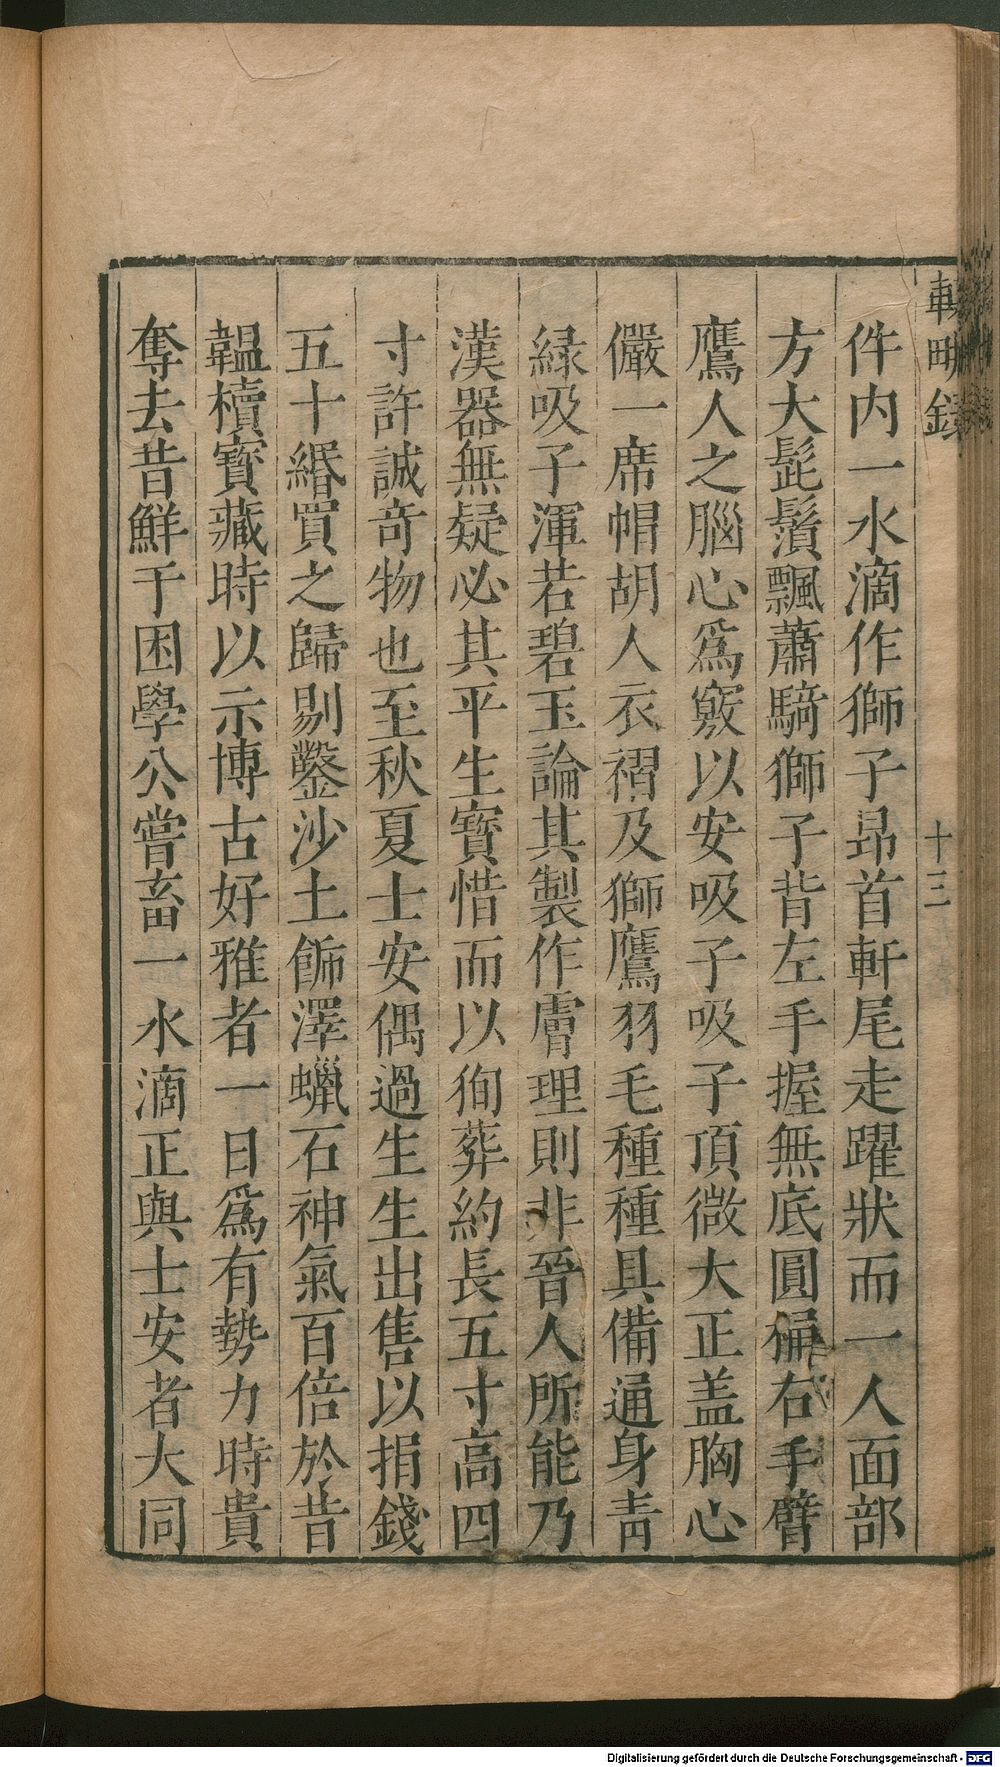 輟畊錄
十三
件内一水滴作獅子昂首軒尾走躍狀而一人面部
方大髭鬚飄蕭騎獅子背左手握無底圓桶右手臂
鷹人之腦心爲竅以安吸子吸子頂微大正盖胸心
儼一席帽胡人衣褶及獅鷹羽毛種種具備通身靑
緑吸子渾若碧玉論其製作膚理則非晉人所能乃
漢器無疑必其平生寶惜而以徇葬約長五寸高四
寸許誠奇物也至秋夏士安偶過生生出售以捐錢
五十緡買之歸剔鑿沙土餙澤蠟石神氣百倍於昔
韞櫝寶藏時以示博古好雅者一日爲有勢力時貴
奪去昔鮮于困學公嘗畜一水滴正與士安者大同
Digitalisierung gefördert durch die Deutsche Forschungsgemeinschaft - DFG